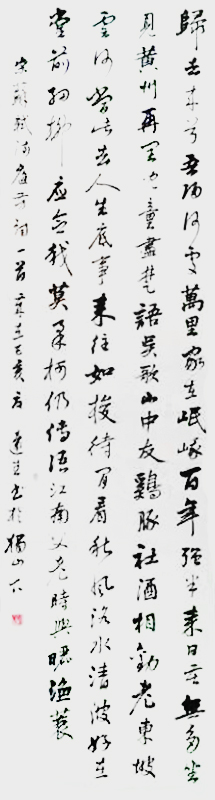 歸去来兮吾歸何處萬里家在岷峨百年强半来日苦無多坐
見黄州再閏児童盡楚語吳歌山中友鷄豚社酒相勸老東坡
云何當此去人生底事来往如梭待閒看秋風洛水清波好在
堂前細柳應念我莫剪柔柯仍傳語江南父老時與曬漁蓑
宋蘇軾滿庭芳詞一首歲在己亥方 書於獨山下